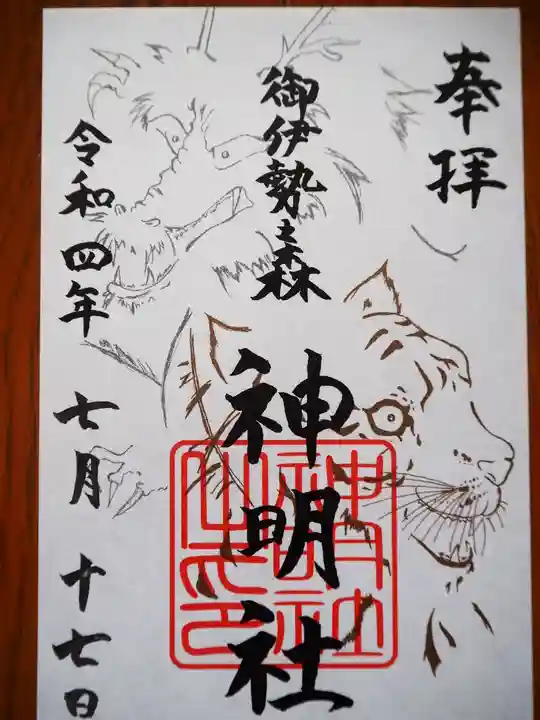 奉拝
御伊勢之森
神明社
神明社之印
令和四年 七月 十七日